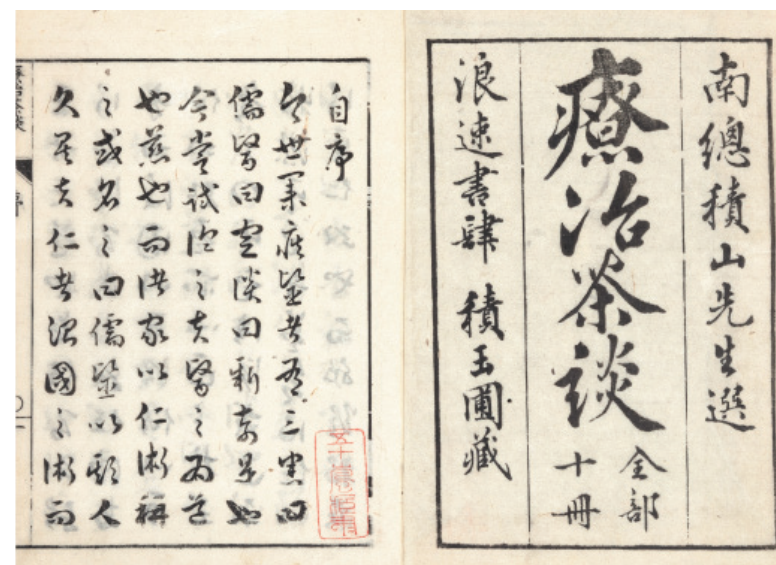 南總積山先生選
療治茶談
全部
十冊
浪速書肆 積玉圃藏
自序
今世業疾毉者有三害曰
儒醫曰空談曰新奇是也
今嘗試論之夫醫之為道
也慈也而諸家以仁術稱
之或名之曰儒毉以 人
久矣夫仁者治國之術而
序